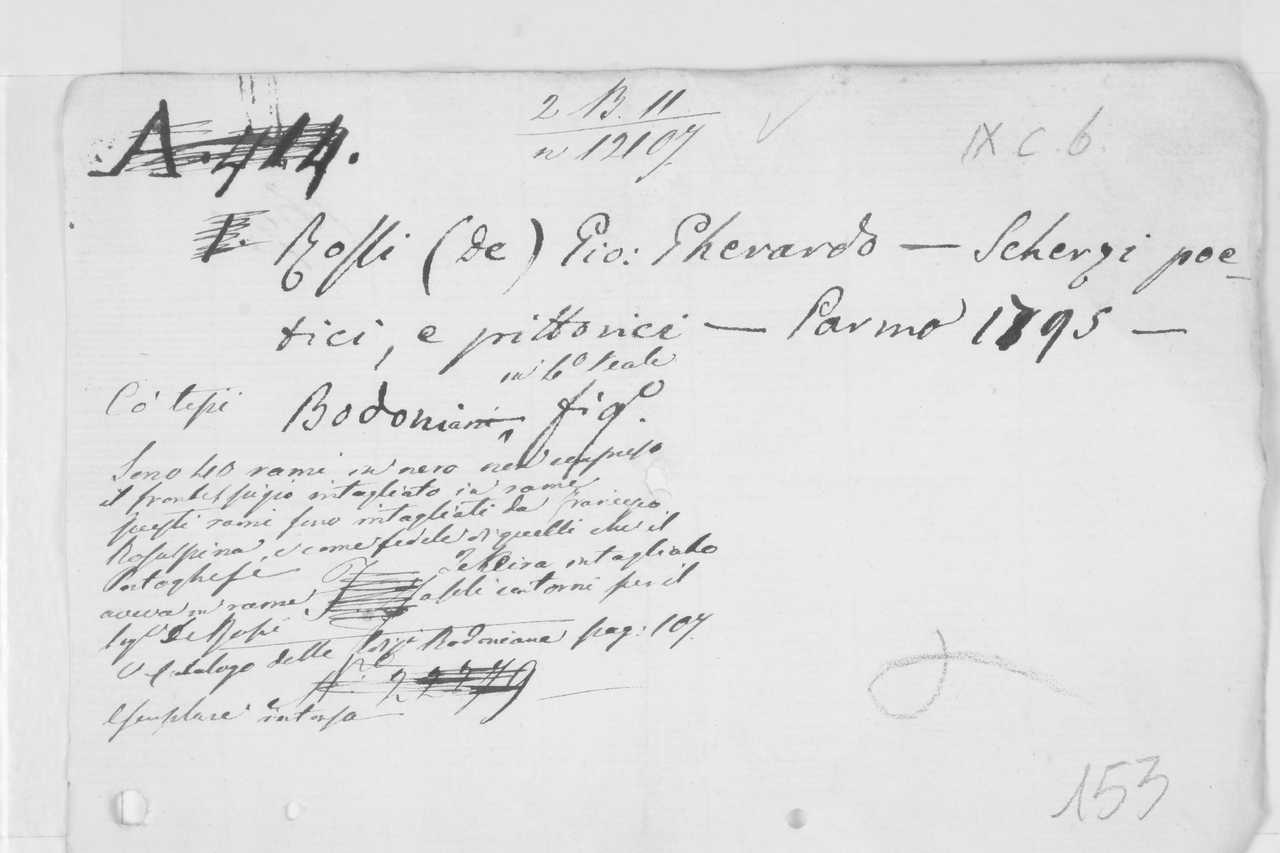 A. 414.
2 B. 11
n 12107
IX C. 6.
I. Rossi (de) Gio: Gherardo — Scherzi poe-
tici, e pittorici — Parma 1795 —
in 4º reale
Co' tipi Bodoniani figº.
Sono 40 rami in nero non compreso
il frontespizio intagliato in rame
questi rami sono intagliati da Francesco
Rosaspina, e come fedele di quelli che il
Portoghese Tekeira intagliato
aveva in rame a soli contorni per il
Sigr De Rossi
V. Catalogo delle Bodoniana pag: 107.
Nº 22779
esemplare intonso
153